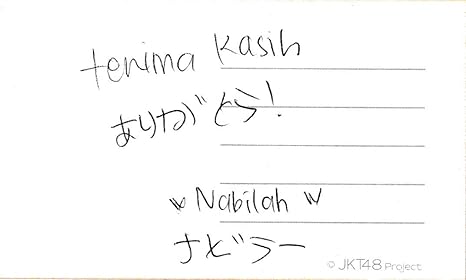 terima kasih
ありがとう!
Nabilah
ナビラー
© JKT48 Project